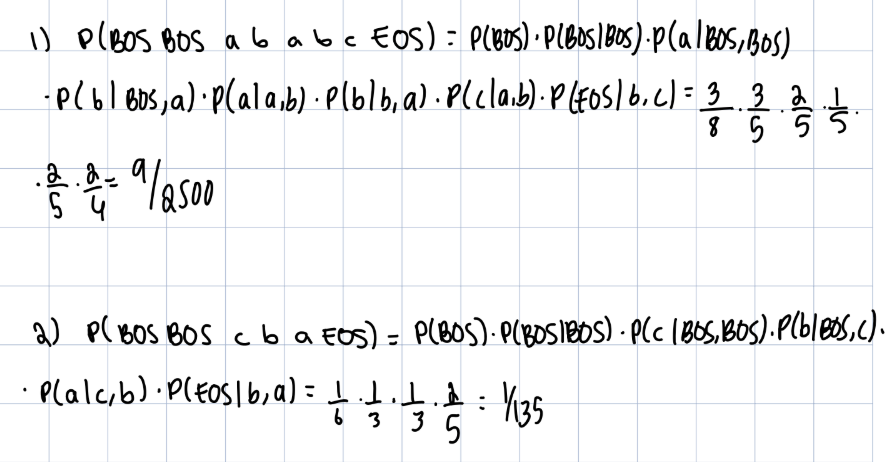 1) P(BOS BOS a b a b c EOS) = P(BOS)·P(BOS|BOS)·P(a|BOS,BOS)
·P(b|BOS,a)·P(a|a,b)·P(b|b,a)·P(c|a,b)·P(EOS|b,c) = 3/8 · 3/5 · 2/5 · 1/5 ·
· 2/5 · 2/4 = 9/2500
2) P(BOS BOS c b a EOS) = P(BOS)·P(BOS|BOS)·P(c|BOS,BOS)·P(b|BOS,c)·
·P(a|c,b)·P(EOS|b,a) = 1/6 · 1/3 · 1/3 · 2/5 = 1/135